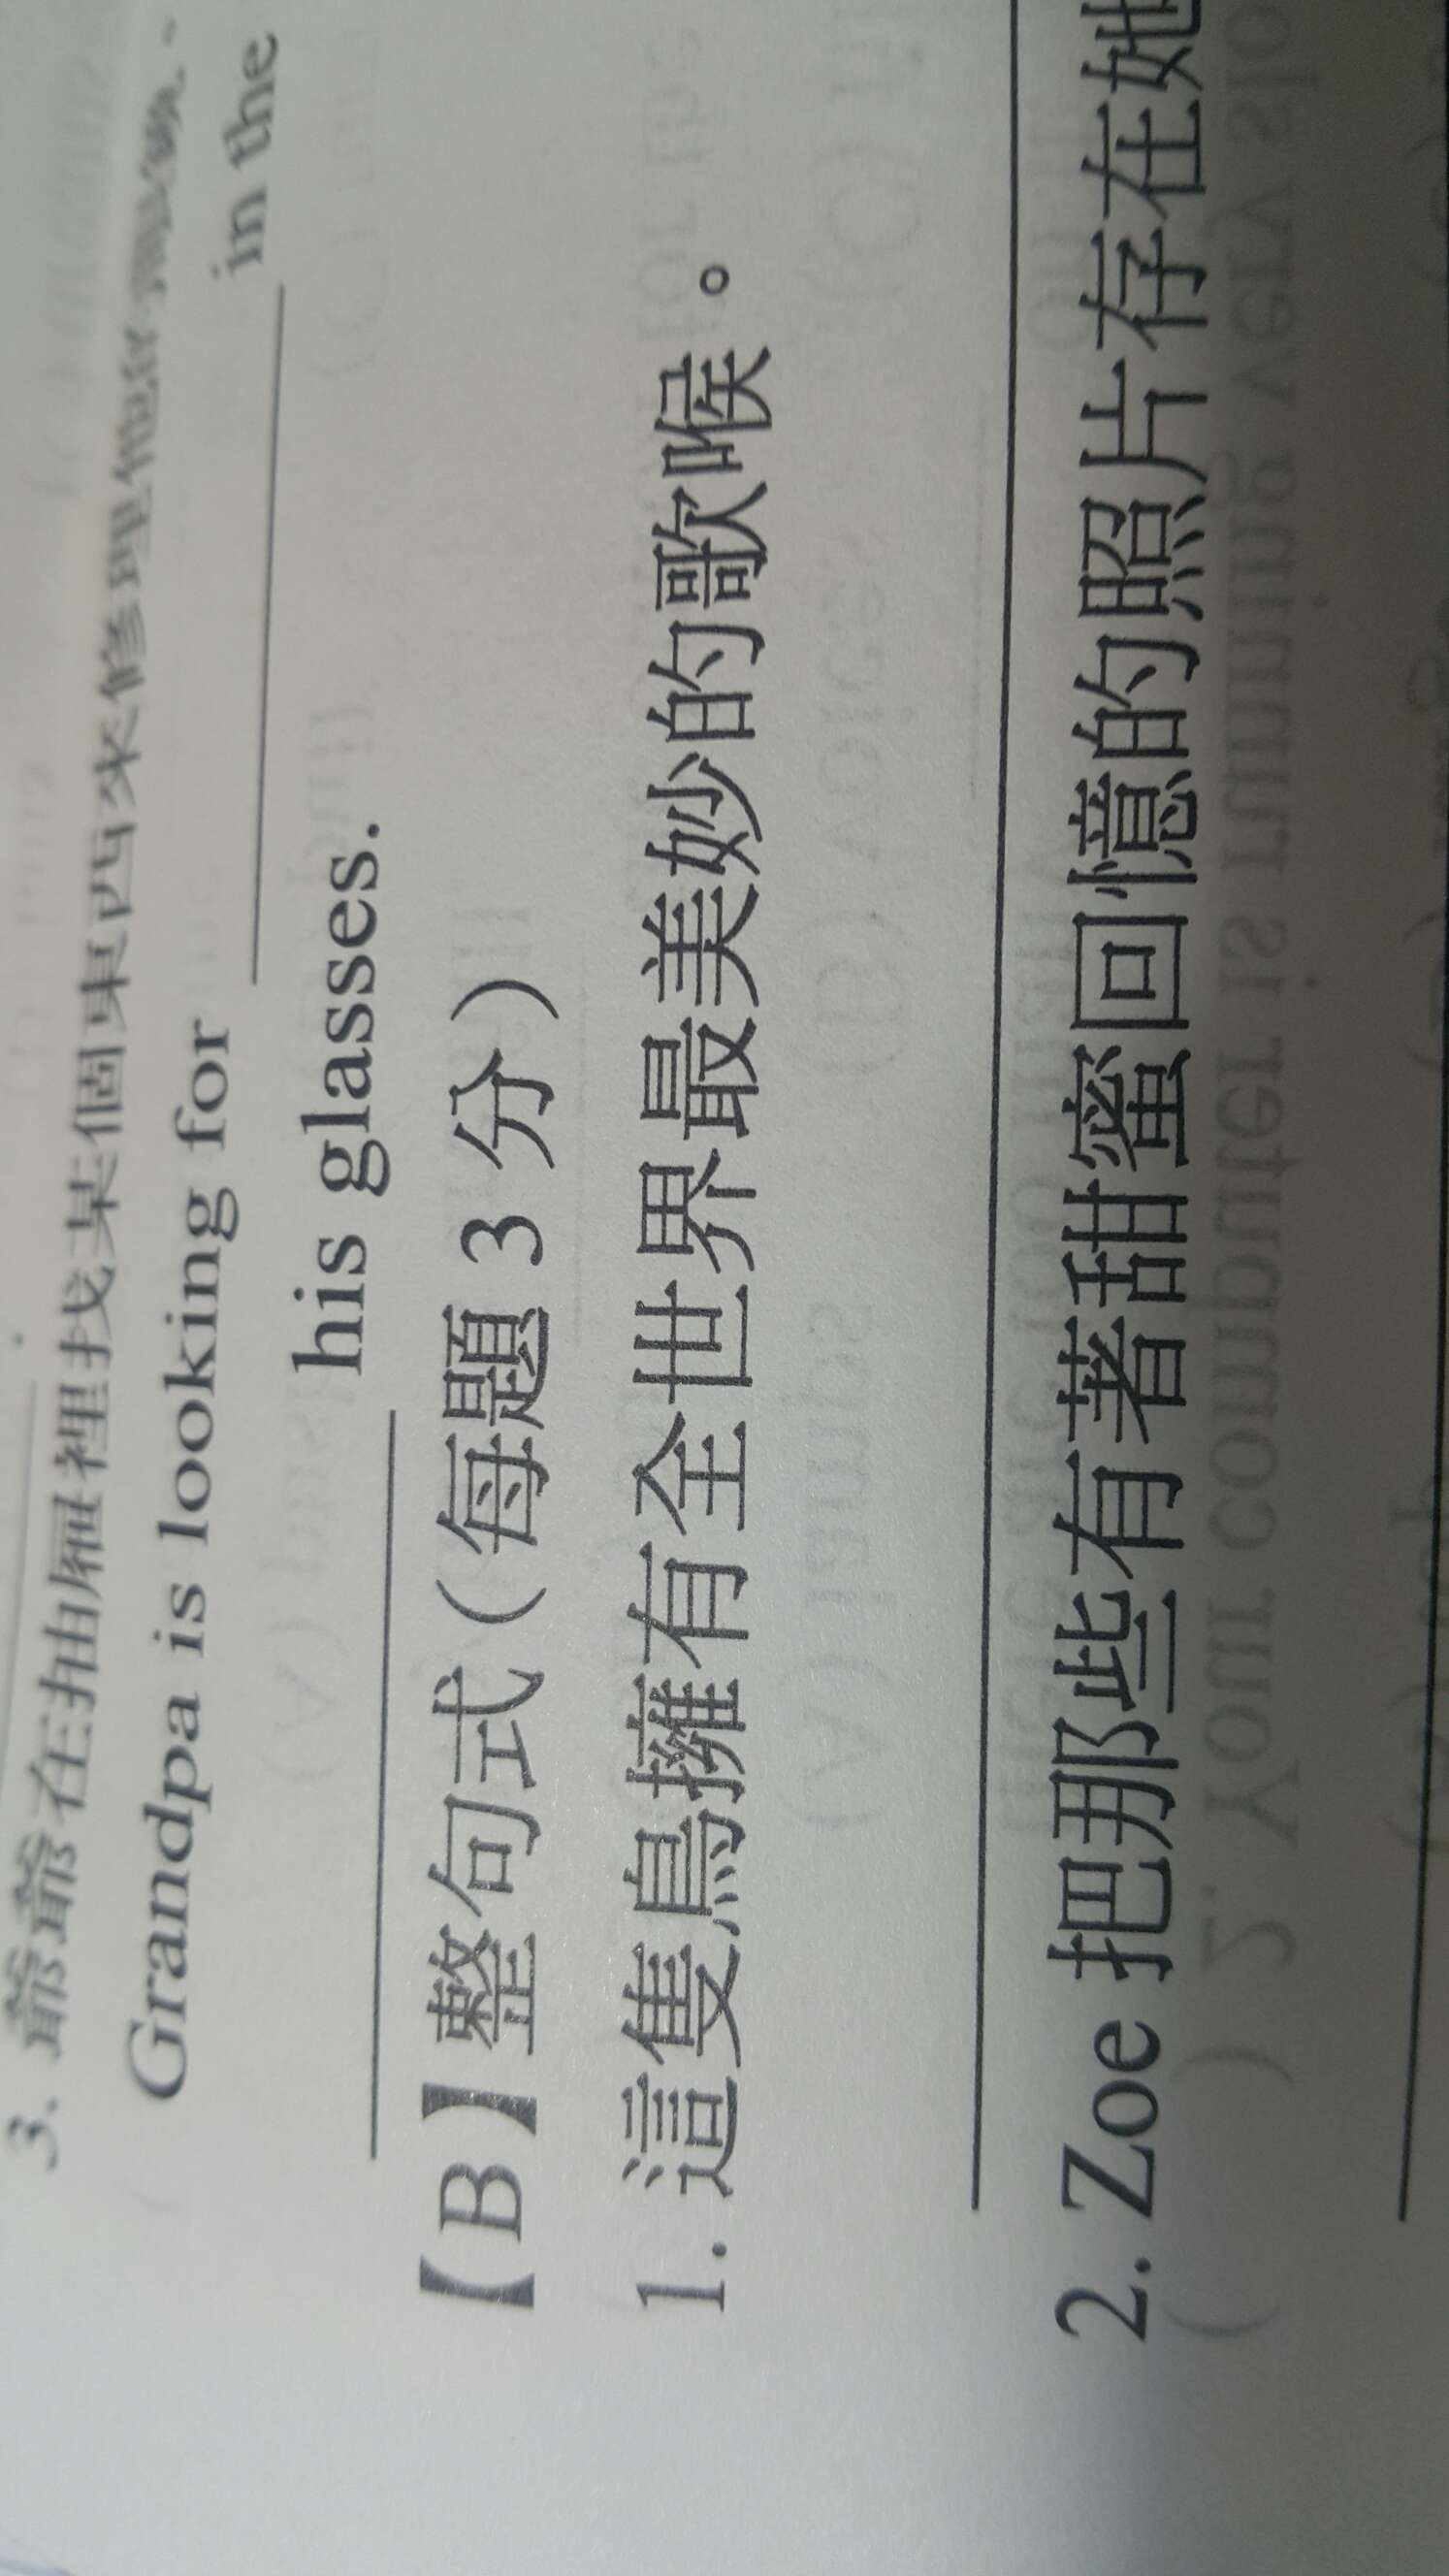 3. 爺爺在抽屜裡找某個東西來修理他的眼鏡。
Grandpa is looking for ________ in the
________ his glasses.
【B】整句式（每題 3 分）
1. 這隻鳥擁有全世界最美妙的歌喉。
2. Zoe 把那些有著甜蜜回憶的照片存在她